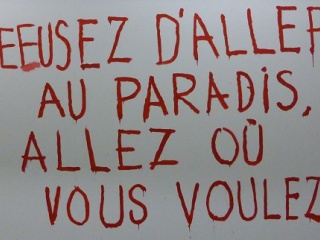 EFUSEZ D'ALLER
AU PARADIS,
ALLEZ OÙ
VOUS VOULEZ